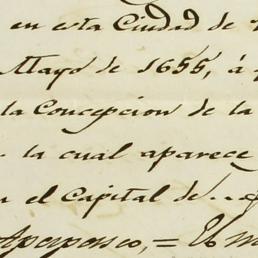 en esta Ciudad de
Mayo de 1655, á
la Concepcion de la
la cual aparece
el Capital de